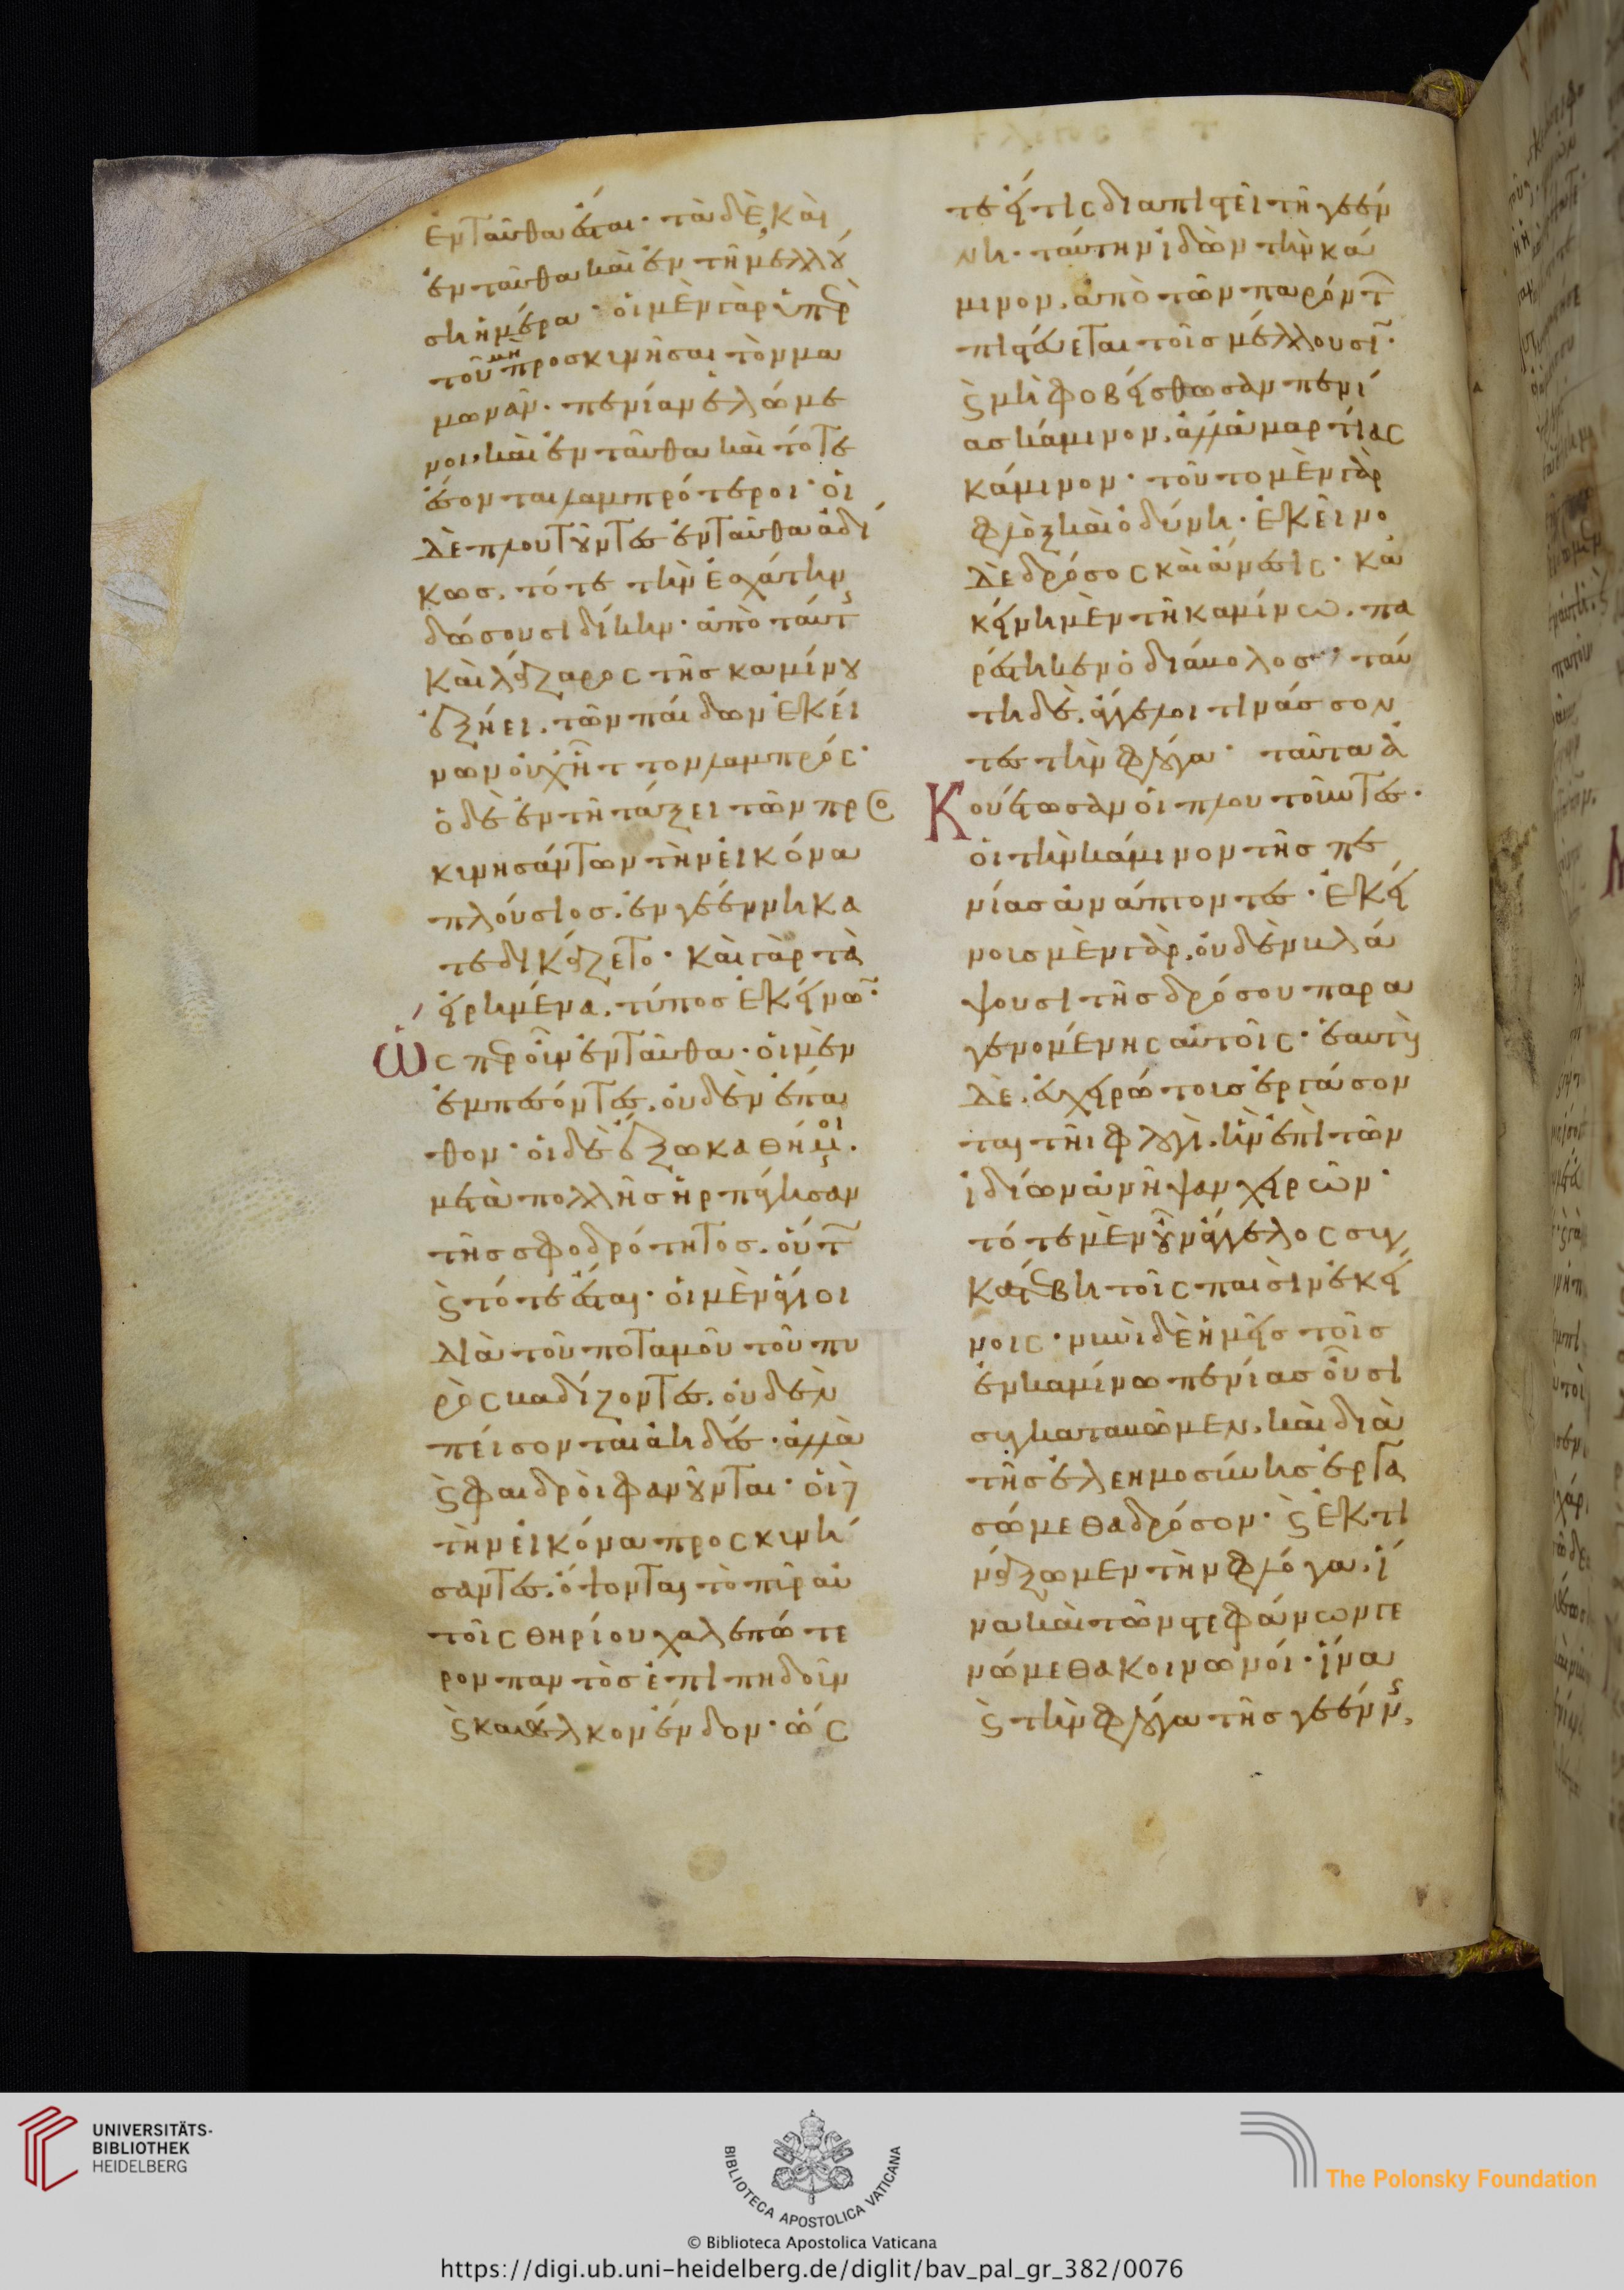 ἐνταῦθα ἔσται· τὰ δὲ καὶ
ἐνταῦθα καὶ ἐν τῇ μελλού
ση ἡμέρα· οἱ μὲν γὰρ ὑπὲρ
τοῦ μὴ προσκυνῆσαι τὸν μα
μωνᾶν· πενίαν ἑλόμε
νοι, καὶ ἐνταῦθα καὶ τότε
ἔσονται λαμπρότεροι· οἱ
δὲ πλουτοῦντες ἐνταῦθα ἀδί
κως, τότε τὴν ἐσχάτην
δώσουσι δίκην· ἀπὸ ταύτης
καὶ λάζαρος τῆς καμίνου
ἐξήει, τῶν παίδων ἐκεί
νων οὐχ ἧττον λαμπρός·
ὁ δὲ ἐν τῆ τάξει τῶν προσ
κυνησάντων τὴν εἰκόνα
πλούσιος, ἐν γεέννη κα
τεδικάζετο· καὶ γὰρ τὰ
εἰρημένα, τύπος ἐκείνων·
Ὥσπερ οὖν ἐνταῦθα· οἱ μὲν
ἐμπεσόντες, οὐδὲν ἔπα
θον· οἱ δὲ ἔξω καθήμενοι·
μετὰ πολλῆς ἡρπάγησαν
τῆς σφοδρότητος, οὕτω
καὶ τότε ἔσται· οἱ μὲν ἅγιοι
διὰ τοῦ ποταμοῦ τοῦ πυ
ρὸς βαδίζοντες, οὐδὲν
πείσονται ἀηδές· ἀλλὰ
καὶ φαιδροὶ φανοῦνται· οἱ δὲ
τὴν εἰκόνα προσκυνή
σαντες, ὄψονται τὸ πῦρ αὐ
τοῖς θηρίου χαλεπώτε
ρον παντὸς ἐπιπηδοῦν
καὶ καθέλκον ἔνδον· ὥς
τε εἴ τις διαπιστεῖ τῆ γεέν
νη· ταύτην ἰδὼν τὴν κά
μινον, ἀπὸ τῶν παρόντων
πιστούεται τοῖς μέλλουσι·
καὶ μὴ φοβείσθω σὰν πενί
ας κάμινον, ἀλλ' ἁμαρτίας
κάμινον· τοῦτο μὲν γὰρ
φλὸξ καὶ ὀδύνη· ἐκεῖνο
δὲ δρόσος καὶ ἄνεσις· κἀ
κείνη μὲν τῆ καμίνω, πα
ρέστηκεν ὁ διάβολος, ταύ
τη δὲ, ἄγγελοι τινάσσον
τες τὴν φλόγα· ταῦτα ἀ
Κουέτωσαν οἱ πλουτοῦντες·
οἱ τὴν κάμινον τῆς πε
νίας ἀνάπτοντες· ἐκεί
νοις μὲν γὰρ, οὐδὲν βλά
ψουσι τῆς δρόσου παρα
γενομένης αὐτοῖς· ἑαυτοὺς
δὲ, εὐχειρώτους ἐργάσον
ται τῆι φλογὶ, ἣν ἐπὶ τῶν
ἰδίων ἀνῆψαν χειρῶν·
τότε μὲν οὖν ἄγγελος συγ
κατέβη τοῖς παισὶν ἐκεί
νοις· νυνὶ δὲ ἡμεῖς τοῖς
ἐν καμίνω πενίας οὖσι
συγκαταβῶμεν, καὶ διὰ
τῆς ἐλεημοσύνης ἐργα
σώμεθα δρόσον· καὶ ἐκτι
νάξωμεν τὴν φλόγα, ἵ
να καὶ τῶν στεφάνων γε
νώμεθα κοινωνοί· ἵνα
καὶ τὴν φλόγα τῆς γεέννης,
UNIVERSITÄTS-
BIBLIOTHEK
HEIDELBERG
BIBLIOTECA APOSTOLICA VATICANA
© Biblioteca Apostolica Vaticana
The Polonsky Foundation
https://digi.ub.uni-heidelberg.de/diglit/bav_pal_gr_382/0076